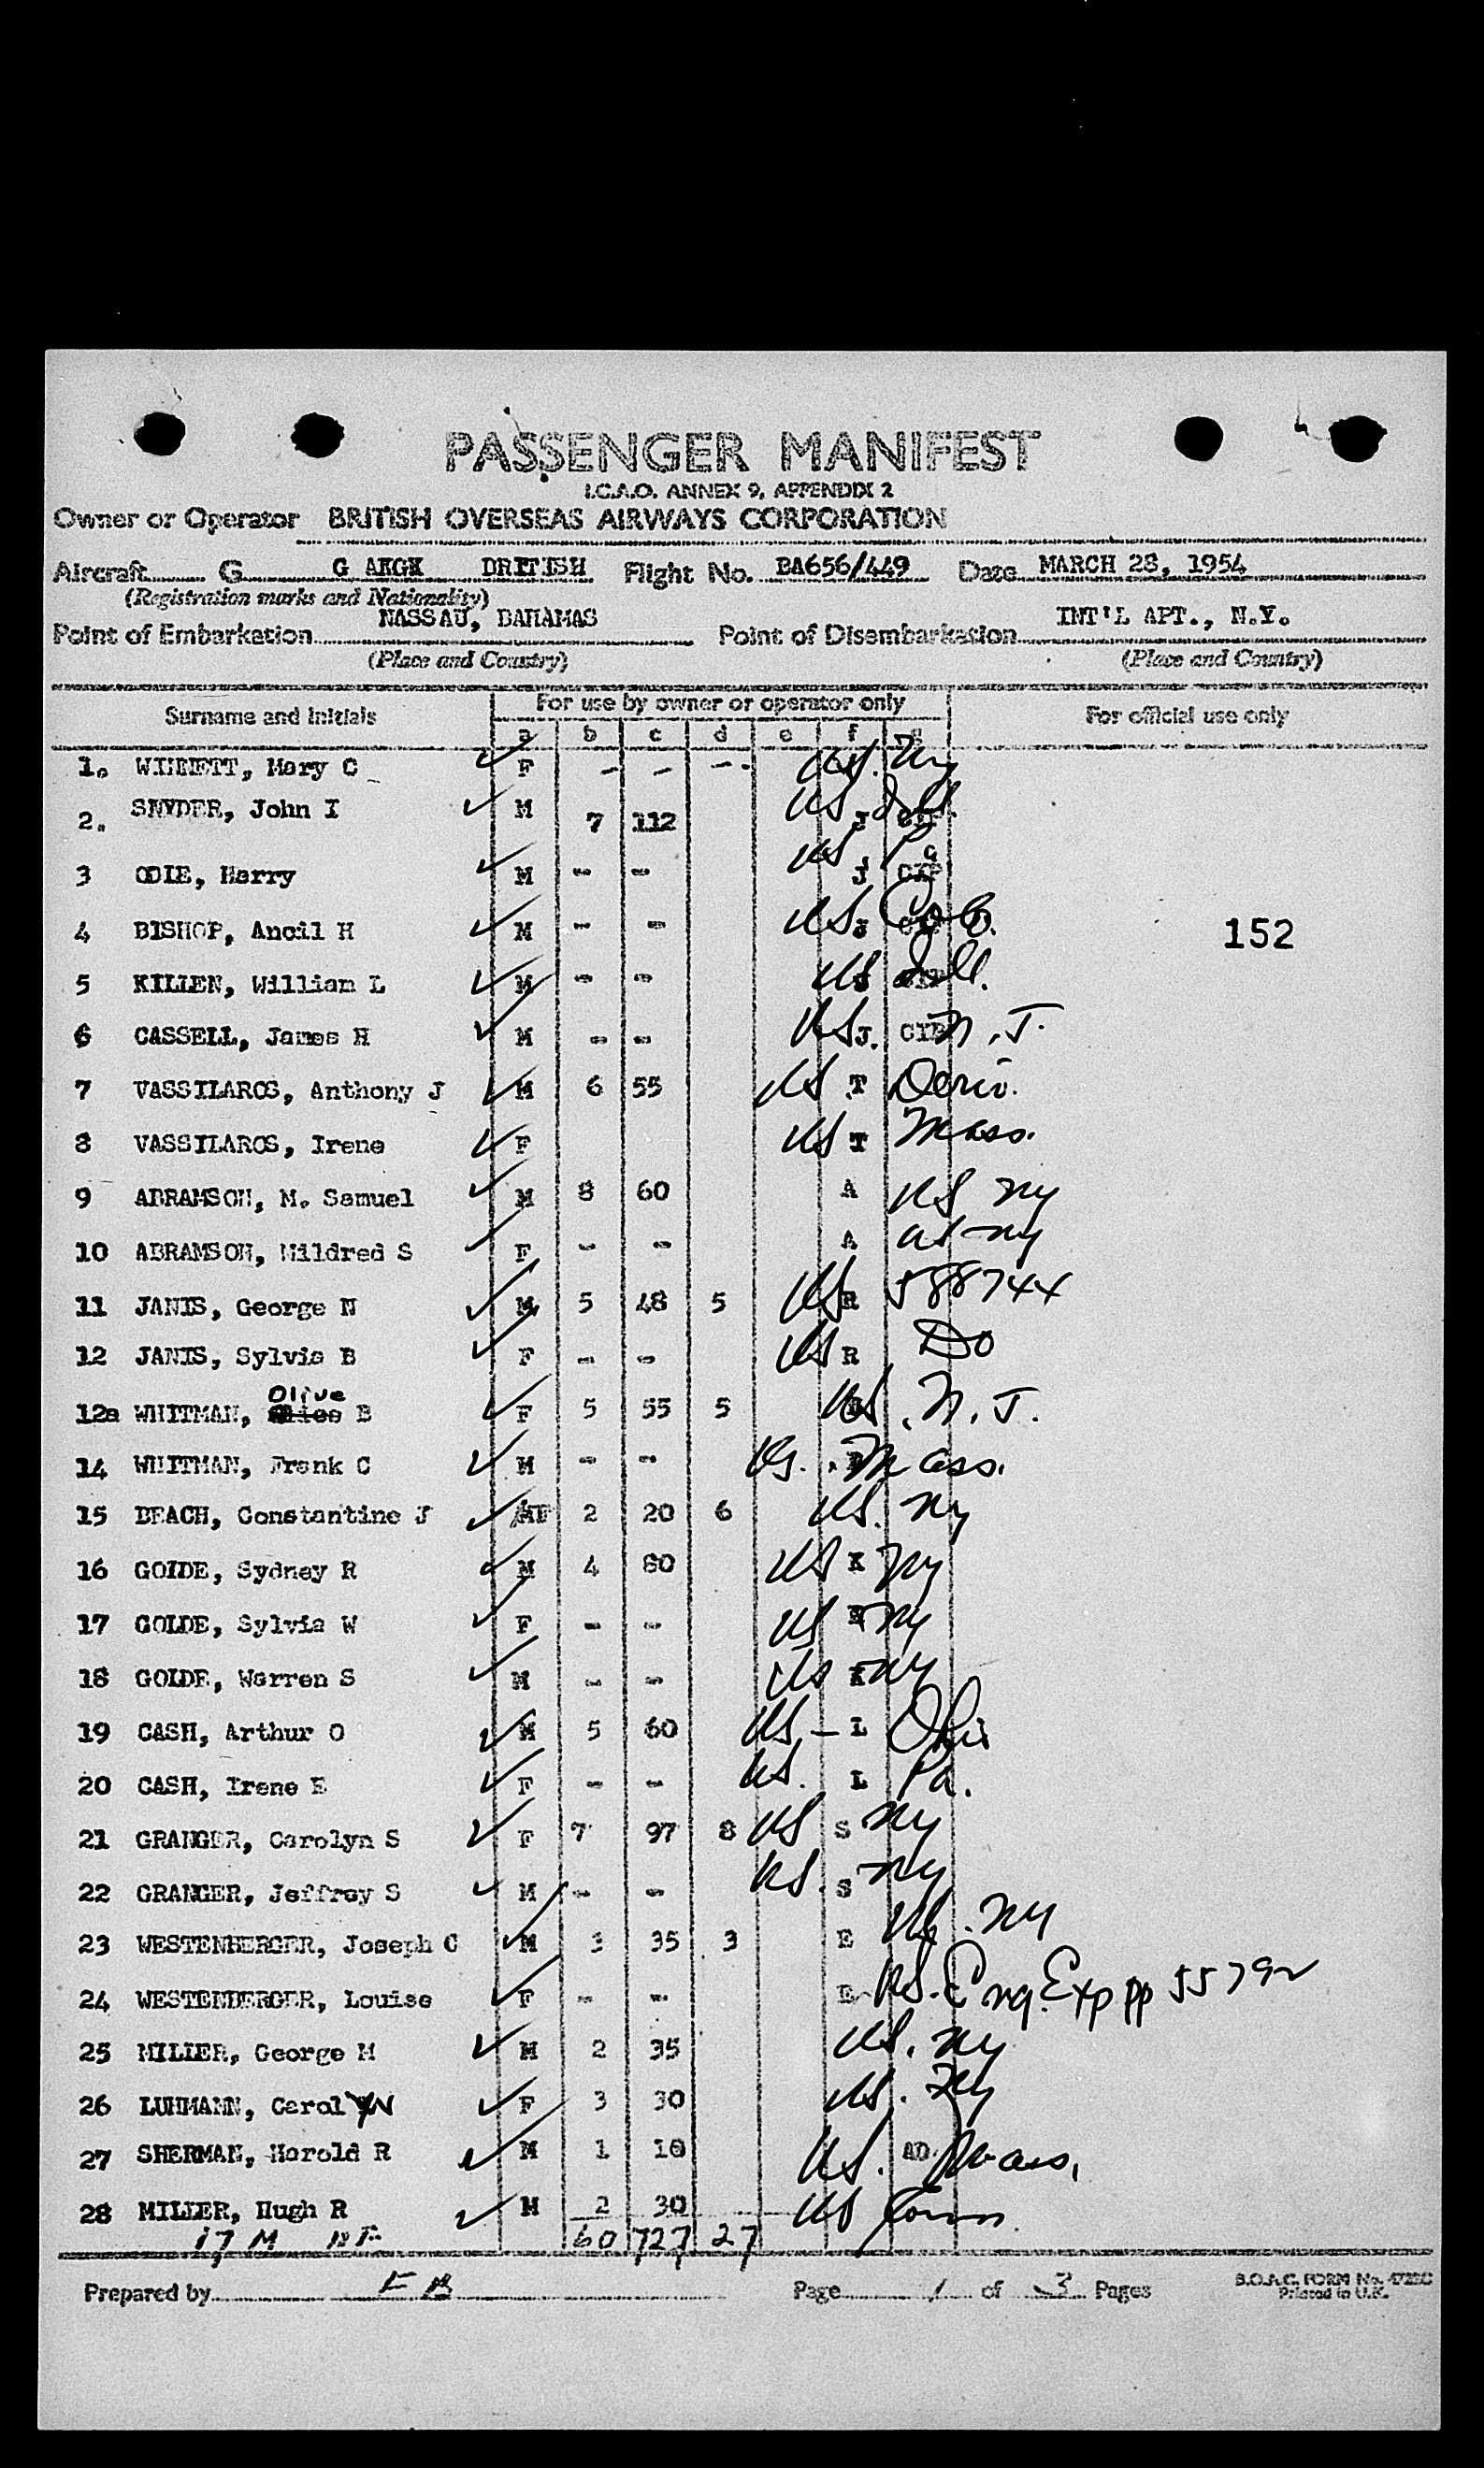 PASSENGER MANIFEST
I.C.A.O. ANNEX 9, APPENDIX 2
Owner or Operator BRITISH OVERSEAS AIRWAYS CORPORATION
Aircraft G G BRITISH Flight No. BA656/449 Date MARCH 28, 1954
(Registration marks and Nationality)
NASSAU, BAHAMAS INT'L APT., N.Y.
Point of Embarkation Point of Disembarkation
(Place and Country) (Place and Country)
Surname and Initials For use by owner or operator only For official use only
a b c d e f g
1. Mary C F - - - US. Ny
2. SNYDER, John I M 7 112 US J Ill.
3 ODIE, Harry M - - US. J Pa
4 BISHOP, Ancil H M - - US. J Colo. 152
5 KILLEN, William L M - - US Ill.
6 CASSELL, James H M - - US J. N.J.
7 VASSILAROS, Anthony J M 6 55 US. T Deriv.
8 VASSILAROS, Irene F US T Mass.
9 ABRAMSON, M. Samuel M 8 60 A US Ny
10 ABRAMSON, Mildred S F - - A US Ny
11 JANIS, George N M 5 48 5 US R 588744
12 JANIS, Sylvia B F - - US R Do
12a WHITMAN, Olive B F 5 55 5 US. N.J.
14 WHITMAN, Frank C M - - US. Mass.
15 BEACH, Constantine J F 2 20 6 US. Ny
16 GOLDE, Sydney R M 4 80 US K Ny
17 GOLDE, Sylvia W F - - US K Ny
18 GOLDE, Warren S M - - US K Ny
19 CASH, Arthur O M 5 60 US - L Ohio
20 CASH, Irene E F - - US. L Pa.
21 GRANGER, Carolyn S F 7 97 8 US S Ny
22 GRANGER, Jeffrey S M - - US. S Ny
23 WESTENBERGER, Joseph C M 3 35 3 E US. Ny
24 WESTENBERGER, Louise F - - E US. Eng. Exp pp 55792
25 MILLER, George M M 2 35 US. Ny
26 LUHMANN, Carolyn F 3 30 US. Ny
27 SHERMAN, Harold R M 1 10 US. AD Mass.
28 MILLER, Hugh R M 2 30 US Conn.
17 M 60 727 27
Prepared by EB Page 1 of 3 Pages
B.O.A.C. FORM No.
Printed in U.K.